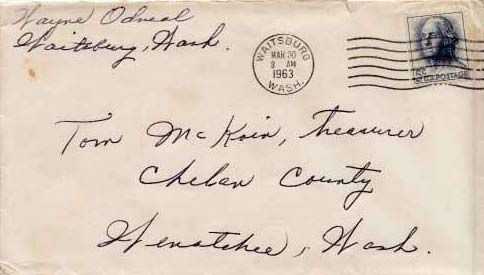 Wayne Odneal
Waitsburg, Wash.
WAITSBURG
MAR 20
AM
1963
WASH.
5¢ U.S. POSTAGE
Tom McKoin, treasurer
Chelan County
Wenatchee, Wash.